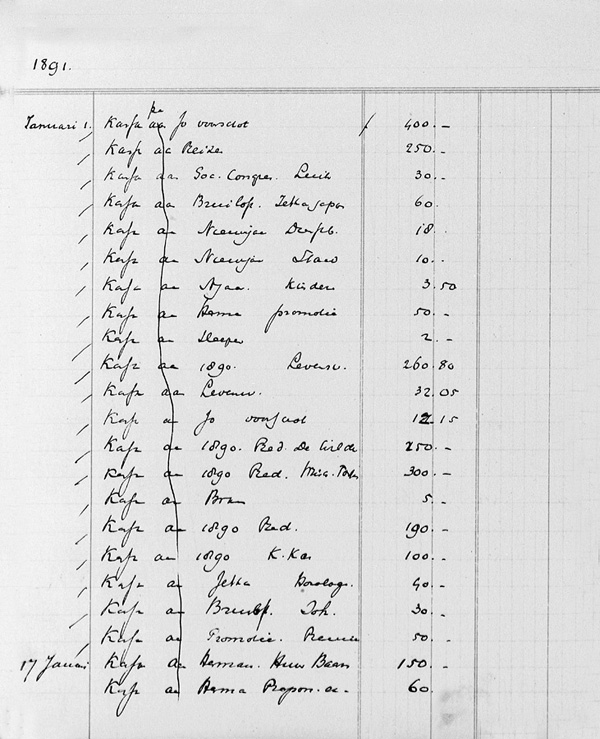 1891.
pr
Januari 1. Kassa aan Jo voorschot f 400. -
Kassa aa Reizen 250. -
Kassa aan Soc. Congres. 30. -
Kassa aan Bruilof. 60.
Kassa aan Nieuwjaar 18.
Kassa aan Nieuwjaar 10. -
Kassa aan Kinderen 3. 50
Kassa aan Herma promotie 50. -
Kassa aan Sleeper 2. -
Kassa aan 1890. Levensv. 260. 80
Kassa aan Levensv. 32. 05
Kassa aan Jo voorschot 12. 15
Kassa aan 1890. Red. De Wilde 250. -
Kassa aan 1890 Red. 300. -
Kassa aan Bram 5. -
Kassa aan 1890 Red. 190. -
Kassa aan 1890 K. Kas 100. -
Kassa aan Jetta Horologe 40. -
Kassa aan Bruilof. Joh. 30. -
Kassa aan Promotie. 50. -
17 Januari Kassa aan Herman. Huur Baarn 150. -
Kassa aan Herma 60. -